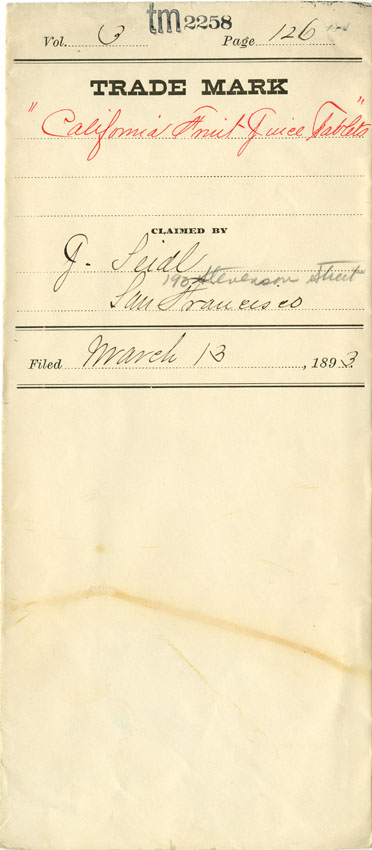 tm 2258
Vol. 6 Page 126
TRADE MARK
"California Fruit Juice Tablets"
CLAIMED BY
J. Seidl
190 Stevenson Street
San Francisco
Filed March 13, 1893.